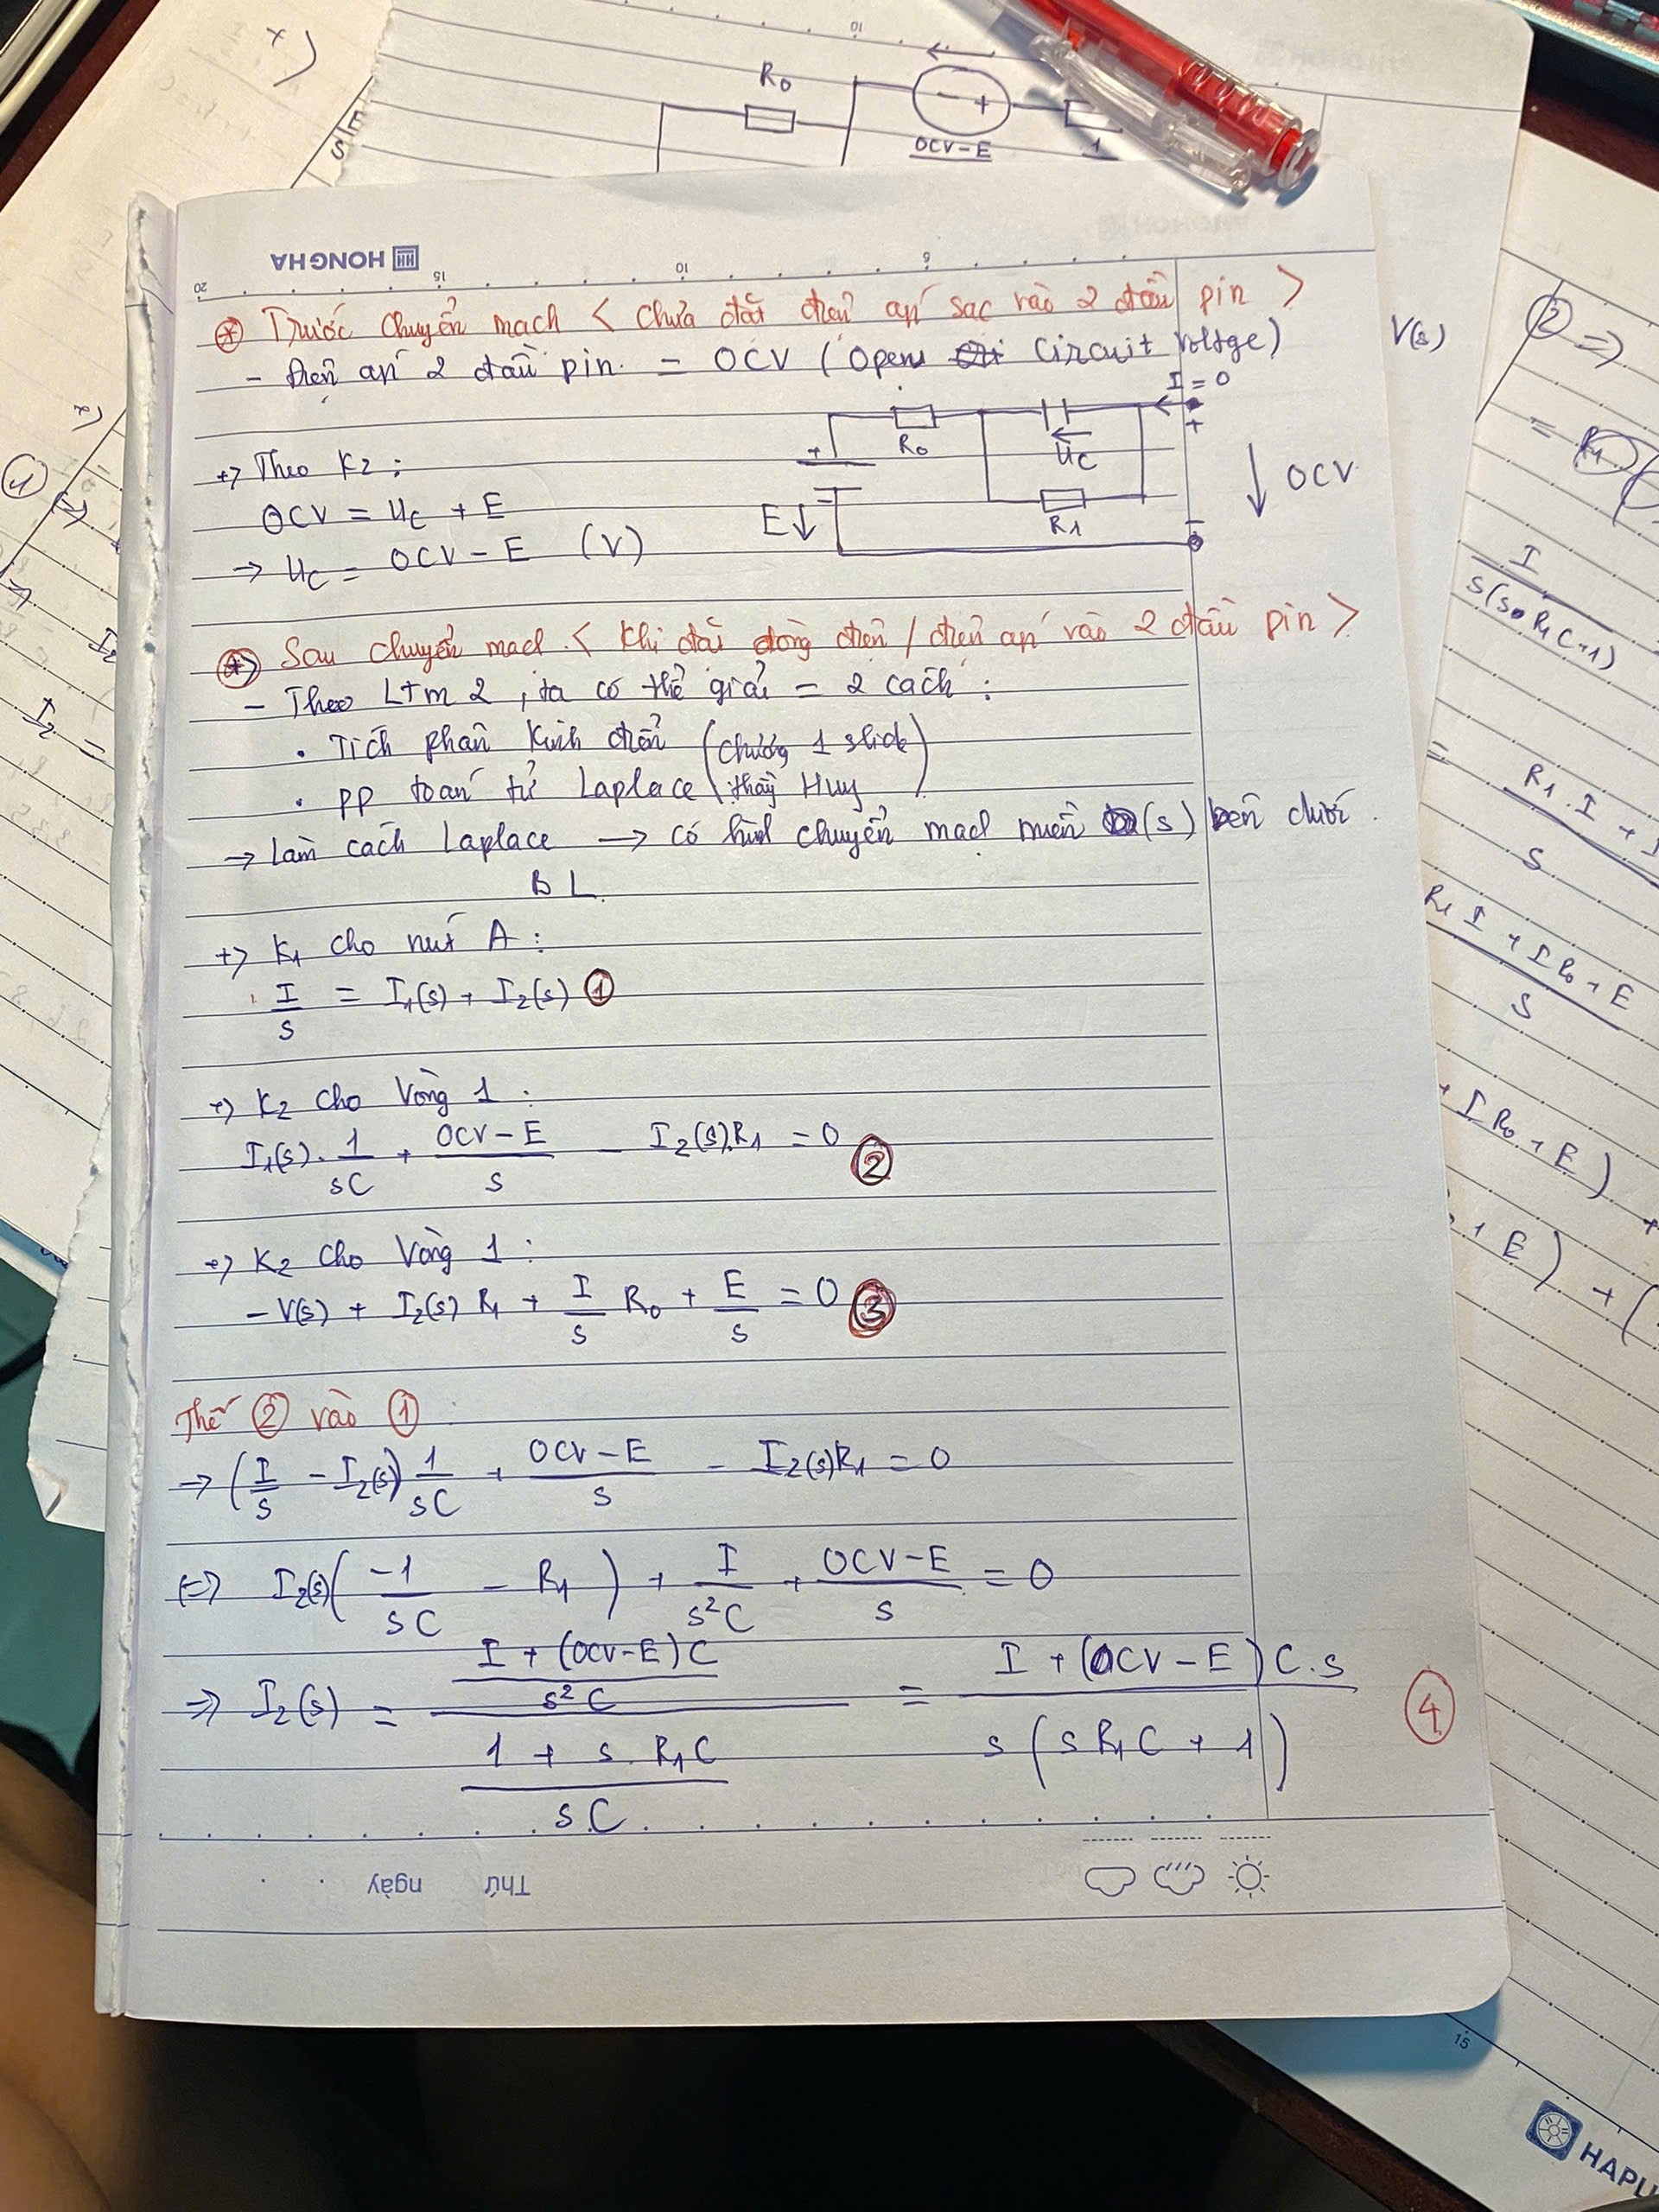 R₀
OCV-E
1
HONGHA
20 15 10 5
⊛ Trước chuyển mạch < chưa đặt điện áp sạc vào 2 đầu pin >
- Điện áp 2 đầu pin = OCV (Open Circuit Voltge)
I = 0
+> Theo K2 :
OCV = U_C + E
→ U_C = OCV - E (V)
+ R₀ U_C +
E↓ R₁ - ↓ OCV
⊛ Sau chuyển mạch < Khi đặt dòng điện / điện áp vào 2 đầu pin >
- Theo LTM 2, ta có thể giải = 2 cách :
• Tích phân kinh điển (chương 1 slide
• PP toán tử Laplace thầy Huy)
→ Làm cách Laplace → có hình chuyển mạch miền (s) bên dưới.
BL
+> K₁ cho nút A :
I/s = I₁(s) + I₂(s) ①
+> K₂ cho Vòng 1 :
I₁(s) . 1/sC + (OCV-E)/s - I₂(s).R₁ = 0 ②
+> K₂ cho Vòng 1 :
-V(s) + I₂(s) R₁ + I/s R₀ + E/s = 0 ③
Thế ② vào ①
→ (I/s - I₂(s)) 1/sC + (OCV-E)/s - I₂(s)R₁ = 0
(=) I₂(s)(-1/sC - R₁) + I/s²C + (OCV-E)/s = 0
=> I₂(s) = ((I + (OCV-E)C)/s²C)/((1 + s.R₁C)/sC) = (I + (OCV-E)C.s)/(s(sR₁C + 1)) ④
Thứ ngày
V(s)
② =>
I/s(s.R₁C+1)
= R₁.I +
s
R₁I + IR₀ + E
s
+ IR₀ + E) +
+ E) + (
①
I₂ =
15
HAPU